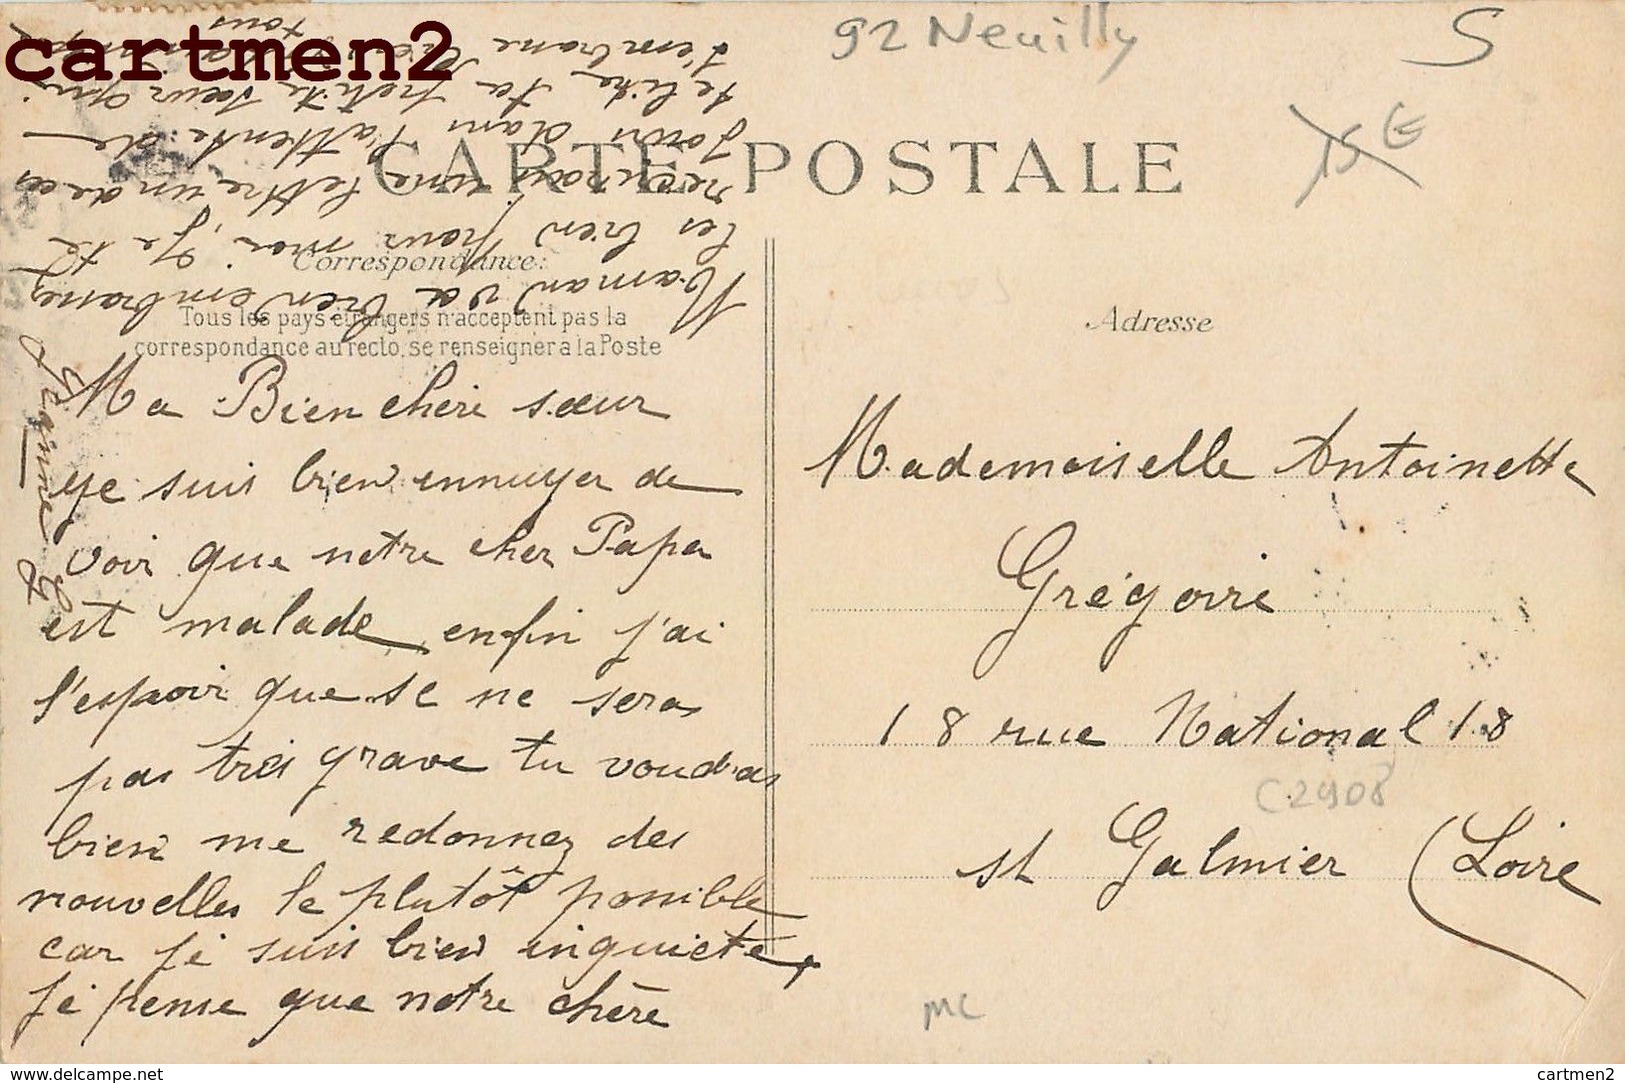 cartmen2
92 Neuilly
S
15 E
CARTE POSTALE
Correspondance:
Tous les pays étrangers n'acceptent pas la
correspondance au recto, se renseigner à la Poste
Adresse
Ma Bien chère sœur
je suis bien ennuyer de
voir que notre cher Papa
est malade enfin j'ai
l'espoir que se ne seras
pas très grave tu voudras
bien me redonnez des
nouvelles le plutôt possible
car je suis bien inquiete,
je pense que notre chère
Maman va bien embrasse
les bien pour moi, je te
recuvois une lettre un de ces
jours dans l'attente de
te lire ta petite sœur qui
t'embrasse
tous
Jeanne
Mademoiselle Antoinette
Grégoire
18 rue National 18
St Galmier (Loire
C2908
MC
https://www.delcampe.net
cartmen2